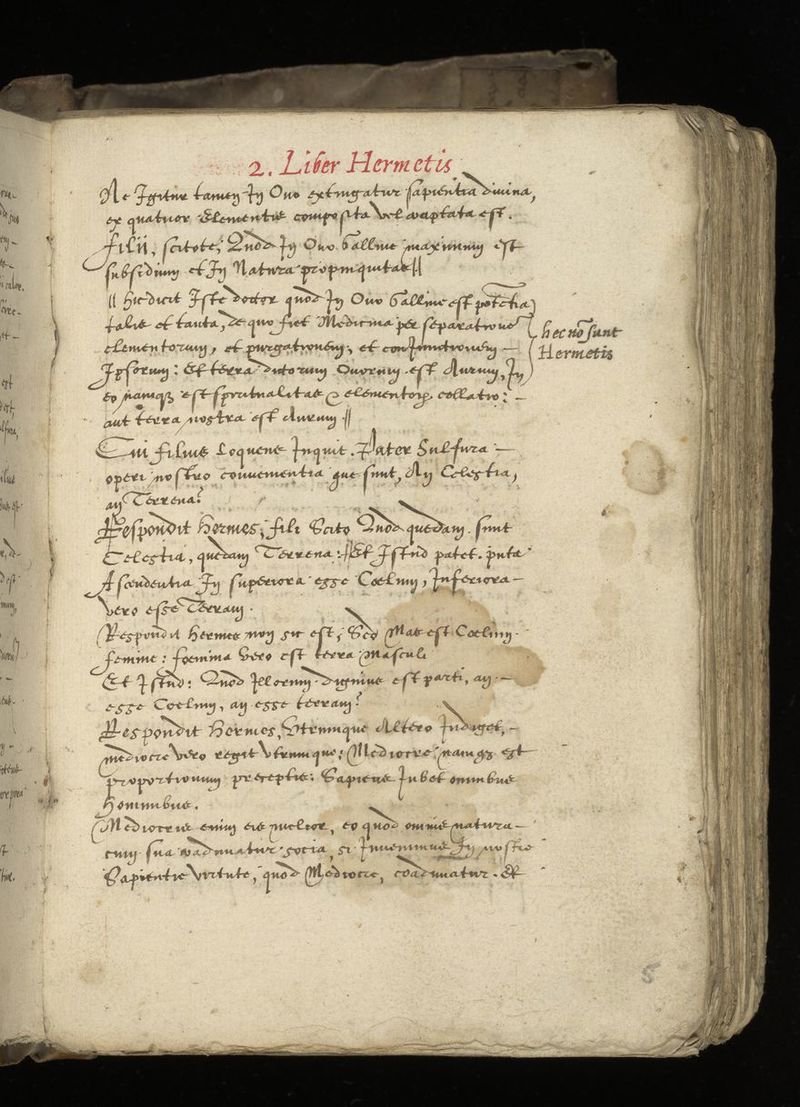 2. Liber Hermetis
Ne Igitur tamen In Ouo extingatur sapientia diuina,
ex quatuor Elementis composita Vel coaptata est.
Filii, scitote, Quod In Ouo Galline maximum est
subsidium et In Natura propinquitas ||
|| Hic dicit Iste doctor quod In Ouo Galline est potētia
talis et tanta, de quo fiet Medicina per separationē
elementorum, et purgationem, et coniunctionem —
hec nō sunt
Hermetis
Ipsorum: Et terra dictorum Ouorum est Aurum, In
eo namqꝫ est spiritualitas & elementorꝫ collatio: —
aut terra nostra est Aurum ||
Cui filius Loquens Inquit. Pater Sulfura —
operi nostro conuenientia que sunt, An Celestia,
an Terrena?
Respondit Hermes, fili Scito Quod quedam sunt
Celestia, quedam Terrena: Et Istud patet. puta
Ascendentia In superiora esse Coelum, Inferiora —
Vero esse Terram.
Respondit Hermes non sic est, Sed Mas est Coelum
femine: foemina Vero est terra Masculi
Et Istud: Quod Illorum dignius est parti, an —
esse Coelum, an esse terram?
Respondit Hermes, Vtrumque Altero Indiget, —
mediocre Vero regit Vtrumque: Mediocre namqꝫ est
proportionum preceptis: Sapiens Iubet omnibus
Hominibus.
Mediocris enim eis melior, eo quod omnis natura —
cum sua coadunatur socia, si Inuenimus In nostre
Sapientie Virtute, quod Mediocre, coadunatur. Et
5